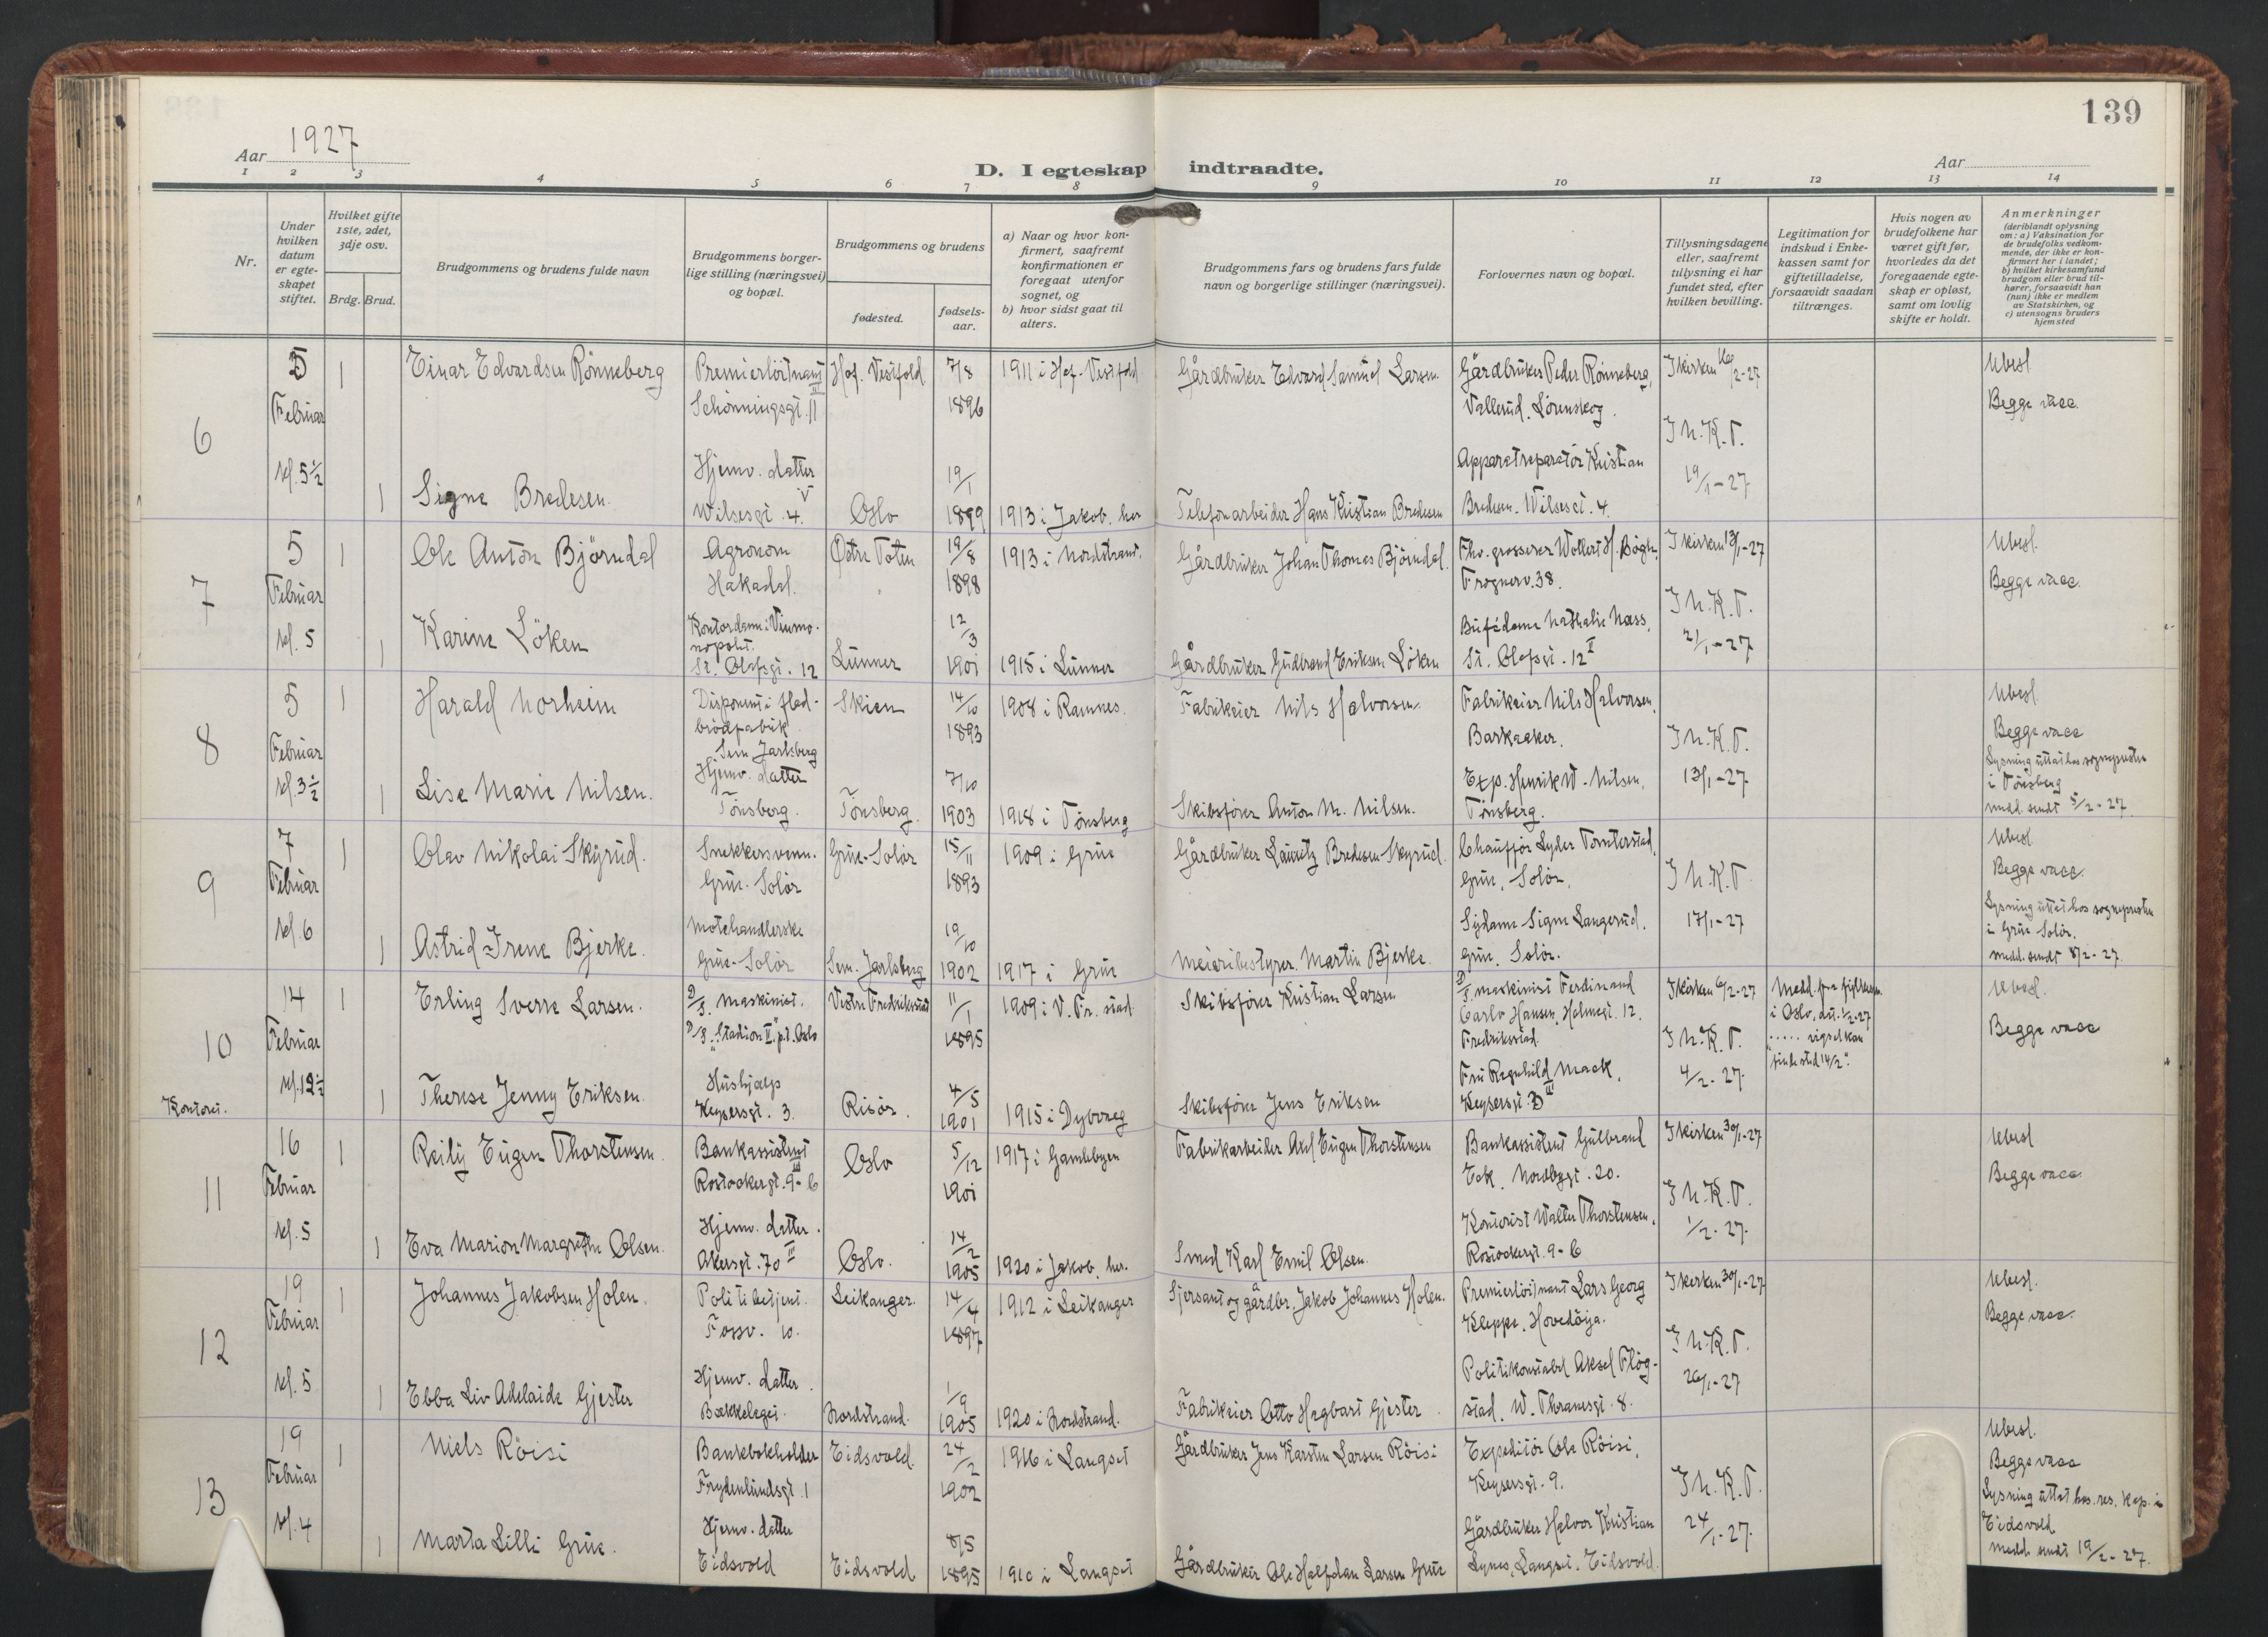 139
Aar 1927
D. I egteskap indtraadte.
Aar
1 2 3 4 5 6 7 8 9 10 11 12 13 14
Nr.
Under hvilken datum er egte-skapet stiftet.
Hvilket gifte 1ste, 2det, 3dje osv.
Brdg. Brud.
Brudgommens og brudens fulde navn
Brudgommens borger-lige stilling (næringsvei) og bopæl.
Brudgommens og brudens
fødested.
fødsels-aar.
a) Naar og hvor kon-firmert, saafremt konfirmationen er foregaat utenfor sognet, og
b) hvor sidst gaat til alters.
Brudgommens fars og brudens fars fulde navn og borgerlige stillinger (næringsvei).
Forlovernes navn og bopæl.
Tillysningsdagene eller, saafremt tillysning ei har fundet sted, efter hvilken bevilling.
Legitimation for indskud i Enke-kassen samt for giftetilladelse, forsaavidt saadan tiltrænges.
Hvis nogen av brudefolkene har været gift før, hvorledes da det foregaaende egte-skap er opløst, samt om lovlig skifte er holdt.
Anmerkninger (deriblandt oplysning om: a) Vaksination for de brudefolks vedkom-mende, der ikke er kon-firmert her i landet; b) hvilket kirkesamfund brudgom eller brud til-hører, forsaavidt han (hun) ikke er medlem av Statskirken, og c) utensogns bruders hjemsted
6
5 Februar kl. 5½
1 Einar Edvardsen Rönneberg
Premierlöitnant Schönningsgt. 11 III
Hof. Vestfold
7/8 1896
1911 i Hof. Vestfold
Gårdbruker Edvard Samuel Larsen.
Gårdbruker Peder Rönneberg, Vallerud. Lörenskog.
I kirken 16/2-27
I N.K.T. 19/1-27
Ubesl.
Begge vacc.
1 Signe Bredesen.
Hjemv. datter Wilsesgt. 4. V
Oslo
19/1 1899
1913 i Jakob. her
Telefonarbeider Hans Kristian Bredesen
Apparatreparatör Kristian Bredesen. Wilsesgt. 4.
7
5 Februar kl. 5
1 Ole Anton Björndal
Agronom Hakadal.
Östre Toten
19/8 1898
1913 i Nordstrand.
Gårdbruker Johan Thomas Björndal.
Fhv. grosserer Wollert H. Bögh, Frognerv. 38.
I kirken 13/1-27
I N.K.T. 21/1-27
Ubesl.
Begge vacc.
1 Karine Löken
Kontordame i Vinmo-nopolet. St. Olafsgt. 12
Lunner
12/3 1901
1915 i Lunner
Gårdbruker Gudbrand Eriksen Löken
Bufédame Nathalie Næss, St. Olafsgt. 12 I
8
5 Februar kl. 3½
1 Harald Norheim
Disponent i flad-brödfabrik Sem. Jarlsberg
Skien
14/10 1893
1908 i Ramnes.
Fabrikeier Nils Halvorsen.
Fabrikeier Nils Halvorsen, Barkaaker.
I N.K.T. 13/1-27
Ubesl.
Begge vacc
Lysning uttat hos sognepresten i Tönsberg
medd. sendt 5/2-27.
1 Lise Marie Nilsen.
Hjemv. datter Tönsberg.
Tönsberg.
7/10 1903
1918 i Tönsberg
Skibsförer Anton M. Nilsen.
Exp. Henrik W. Nilsen. Tönsberg.
9
7 Februar kl. 6
1 Olav Nikolai Skyrud.
Snekkersvenn. Grue. Solör
Grue-Solör
15/11 1893
1909 i Grue
Gårdbruker Lauritz Bredesen Skyrud.
Chauffør Lyder Tomterstad, Grue, Solör.
I N.K.T. 17/1-27
Ubesl
Begge vacc.
Lysning uttat hos sognepresten i Grue Solör.
medd. sendt 8/2-27.
1 Astrid Irene Bjerke.
Motehandlerske Grue-Solör
Sem. Jarlsberg
19/10 1902
1917 i Grue
Meieribestyrer. Martin Bjerke.
Sydame Signe Langerud. Grue. Solör.
10
Kontoret.
14 Februar kl. 12½
1 Erling Sverre Larsen.
D/S. maskinist. D/S. "Stadion II". p.t. Oslo
Vestre Fredrikstad
11/1 1895
1909 i V. Fr. stad
Skibsförer Kristian Larsen
D/S maskinist Ferdinand Carlo Hansen, Holmegt. 12. Fredrikstad.
I kirken 6/2-27
I N.K.T. 4/2-27.
Medd. fra fylkesm. i Oslo, dat. 1/2-27 "..... vigsel kan finde sted 14/2".
Ubesl.
Begge vacc
1 Therese Jenny Eriksen.
Hushjælp Keysersgt. 3.
Risör.
4/5 1901
1915 i Dybvaag
Skibsförer Jens Eriksen
Fru Ragnhild Mack, Keysersgt. 3 III
11
16 Februar kl. 5
1 Reily Eugen Thorstensen.
Bankassistent Rostockergt. 9-b III
Oslo
5/12 1901
1917 i Gamlebyen
Fabrikarbeider Axel Eugen Thorstensen
Bankassistent Gulbrand Eek. Nordbygt. 20.
I kirken 30/1-27
I N.K.T. 1/2-27.
Ubesl
Begge vacc.
1 Eva Marion Margrethe Olsen.
Hjemv. datter. Akersgt. 70 III
Oslo.
14/2 1905
1920 i Jakob. her.
Smed Karl Emil Olsen.
Kontorist Walter Thorstensen. Rostockergt. 9-b
12
19 Februar kl. 5
1 Johannes Jakobsen Holen.
Politibetjent. Fossv. 10.
Leikanger.
14/4 1897
1912 i Leikanger
Sjersant og gårdbr. Jakob Johannes Holen.
Premierlöitnant Lars Georg Kleppe. Hovedöya.
I kirken 30/1-27
I N.K.T. 26/1-27
Ubesl.
Begge vacc.
1 Ebba Liv Adelaide Gjester
Hjemv. datter. Bækkelaget.
Nordstrand.
1/9 1905
1920 i Nordstrand.
Fabrikeier Otto Hagbart Gjester
Politikonstabel Aksel Flög-stad. W. Thranesgt. 8.
13
19 Februar kl. 4
1 Niels Röisi
Bankbokholder Frydenlundsgt. 1
Eidsvold.
24/2 1902
1916 i Langset
Gårdbruker Jens Karsten Larsen Röisi
Expeditör Ole Röisi, Keysersgt. 9.
I N.K.T. 24/1-27.
Ubesl.
Begge vacc
Lysning uttat hos. res. kap. i Eidsvold
medd. sendt 19/2-27.
1 Marta Lilli Grue.
Hjemv. datter Eidsvold
Eidsvold
8/5 1895
1910 i Langset
Gårdbruker Ole Halfdan Larsen Grue
Gårdbruker Halvor Kristian Lynes, Langset. Eidsvold.